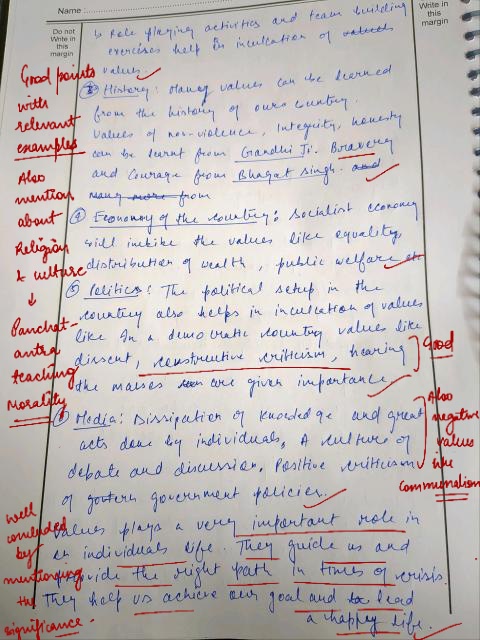 Name :
Do not
Write in
this
margin
Write in
this
margin
↳ Role playing activities and team building
exercises help in inculcation of values
values.
③ History: Many values can be learned
from the history of ours country.
Values of non-violence, Integrity, honesty
can be learnt from Gandhi Ji. Bravery
and Courage from Bhagat Singh. and
many more from
④ Economy of the country: Socialist economy
will imbibe the values like equality,
distribution of wealth, public welfare etc
⑤ Politics: The political setup in the
country also helps in inculcation of values
like In a democratic country values like
dissent, constructive criticism, hearing
the masses are given importance
Media: Dissipation of knowledge and great
acts done by individuals, A culture of
debate and discussion, Positive criticism
of government policies.
Values plays a very important role in
an individuals life. They guide us and
provide the right path in times of crisis.
They help us achieve our goal and to lead
a happy life.
Good points
with
relevant
examples
Also
mention
about
Religion
& culture
↓
Panchat-
antra
teaching
Morality
Well
concluded
by
mentioning
the
significance.
Good
Also
negative
values
like
Communalism